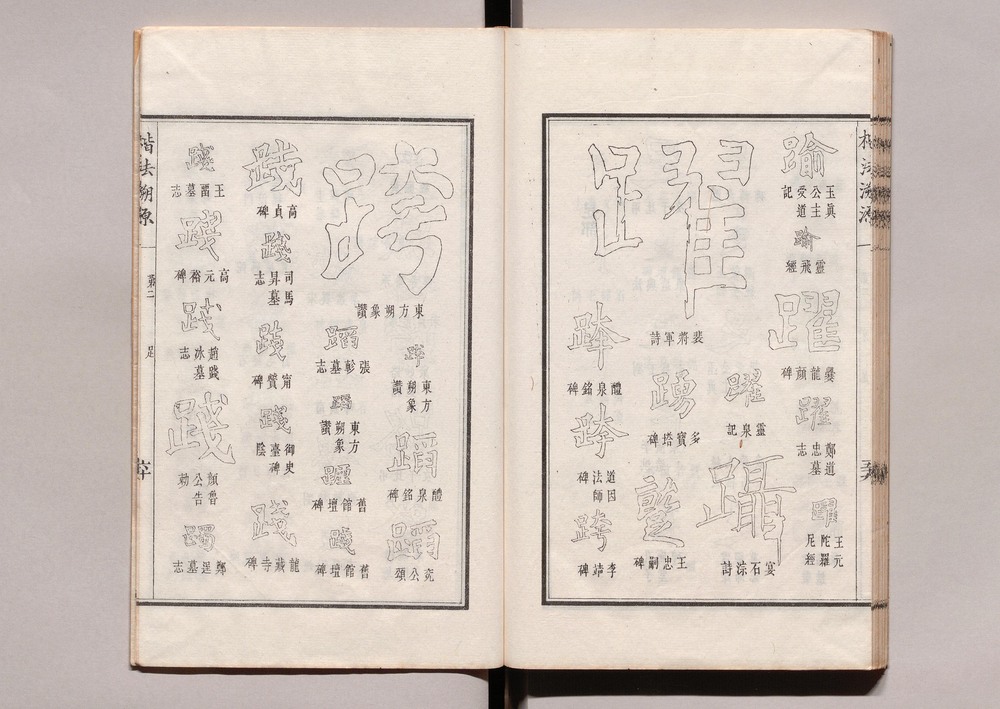 踰
玉真公主受道記
踰
靈飛經
躍
爨龍顏碑
躍
鄭道忠墓志
躍
王元陀羅尼經
躍
裴將軍詩
躍
靈泉記
躡
宴石淙詩
踴
多寶塔碑
躄
王忠嗣碑
跨
醴泉銘碑
跨
道因法師碑
跨
李靖碑
跨
東方朔象讚
跨
東方朔象讚
蹈
醴泉銘碑
蹈
兗公頌
蹈
張彰墓志
蹈
東方朔象讚
躔
舊館壇碑
踐
舊館壇碑
踐
高貞碑
踐
司馬昇墓志
踐
甯贙碑
踐
御史臺碑陰
踐
龍藏寺碑
踐
王畱墓志
踐
高元裕碑
踐
趙冰墓志
踐
顏魯公告勅
躅
鄭逞墓志
楷法溯源
第二
足